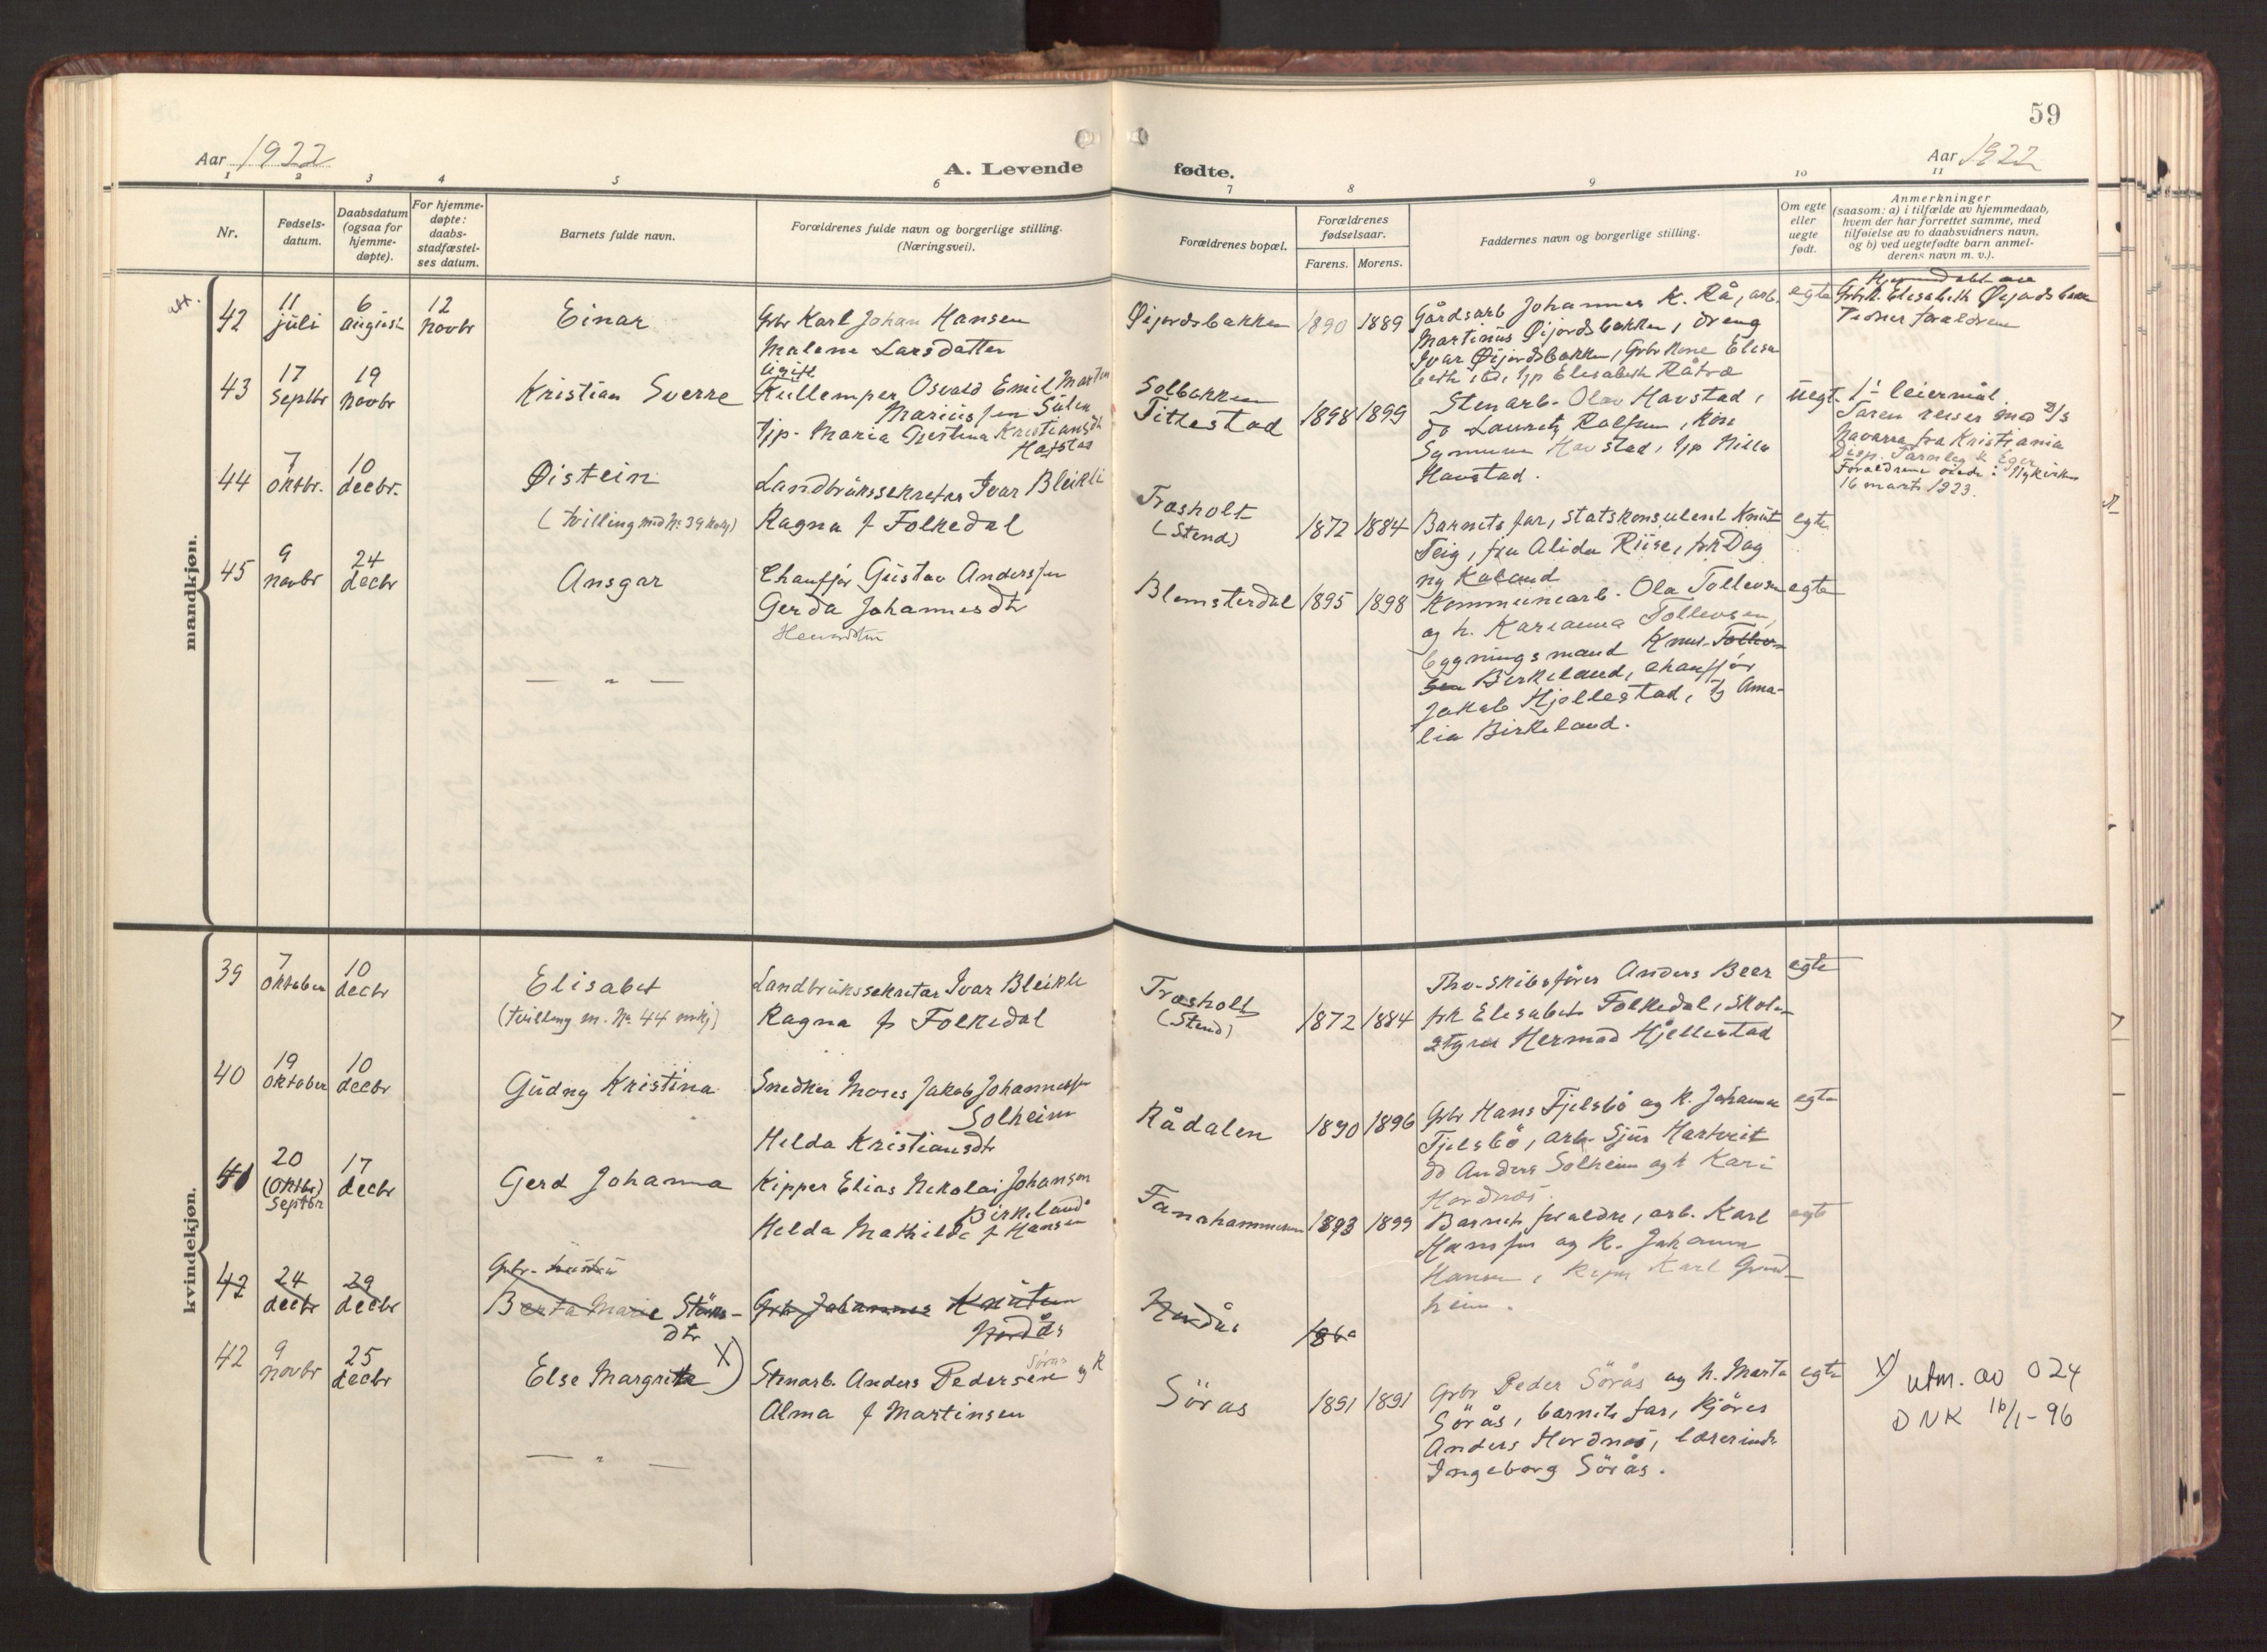 59
Aar 1922
A. Levende
fødte.
Aar 1922
1 2 3 4 5 6 7 8 9 10 11
Nr.
Fødsels-
datum.
Daabsdatum
(ogsaa for
hjemme-
døpte).
For hjemme-
døpte:
daabs-
stadfæstel-
ses datum.
Barnets fulde navn.
Forældrenes fulde navn og borgerlige stilling.
(Næringsvei).
Forældrenes bopæl.
Forældrenes
fødselsaar.
Farens. Morens.
Faddernes navn og borgerlige stilling.
Om egte
eller
uegte
født.
Anmerkninger
(saasom: a) i tilfælde av hjemmedaab,
hvem der har forrettet samme, med
tilføielse av to daabsvidners navn,
og b) ved uegtefødte barn anmel-
derens navn m. v.).
mandkjøn.
att.
42
11
juli
6
august
12
novbr
Einar
Gbr Karl Johan Hansen
Malene Larsdatter
Øijordsbakken
1890 1889
Gårdsarb Johannes K. Rå, arb.
Martinus Øijordsbakken, dreng
Ivar Øijordsbakken, Gbr kone Elisa
beth ibd, tjp Elisabeth Råtræ
egte
Hjemmedøbt av
Gbrk. Elisabeth Øijordsbakken
Vidner forældrene
43
17
Septbr
19
Novbr
Kristian Sverre
ugift
Kullemper Osvald Emil Martin
Mariussen Sulen
tjp. Maria Gjertina Kristiansdt
Hafstad
Solbakken
Tittestad
1898 1899
Stenarb. Olav Havstad,
do Lauritz Rolfsen, kone
Synneve Havstad, tjp Nilla
Havstad.
uegt.
1ste leiermål.
Faren reiser med D/S
Navarra fra Kristiania
Forældrene viede i Nykirken
16 marts 1923.
44
7
oktbr.
10
decbr.
Øistein
(tvilling med No 39 kvkj)
Landbrukssekretær Ivar Bleikli
Ragna f Folkedal
Træsholt
(Stend)
1872 1884
Barnets far, statskonsulent Knut
Teig, fru Alida Riise, frk Dag
ny Kaland
egte
45
9
novbr
24
decbr
Ansgar
Chauffør Gustav Anderssen
Gerda Johannesdtr
Blomsterdal
1895 1898
Kommunearb. Ola Tollevsen
og h. Karianna Tollevsen,
bygningsmand Knut Tollev-
sen Birkeland, chauffør
Jakob Hjellestad, tj Ama-
lia Birkeland.
egte
— " —
kvindekjøn.
39
7
oktober
10
decbr
Elisabet
(tvilling m. No 44 mkj)
Landbrukssekretær Ivar Bleikli
Ragna f Folkedal
Træsholt
(Stend)
1872 1884
Fhv. skibsfører Anders Beer
frk Elisabet Folkedal, skole-
styrer Hermod Hjellestad
egte
40
19
oktober
10
decbr
Gudny Kristina
Snedker Moses Jakob Johannessen
Solheim
Helda Kristiansdtr
Rådalen
1890 1896
Gbr Hans Fjelsbö og k. Johanna
Fjelsbö, arb. Sjur Hartveit
do Anders Solheim og h Kari
Hordnæs.
egte
41
20
(oktbr)
Septbr
17
decbr
Gerd Johanna
Kipper Elias Nikolai Johansen
Birkeland
Helda Mathilde f Hansen
Fanahammeren
1893 1899
Barnets forældre, arb. Karl
Hansen og k. Johanna
Hansen, kipper Karl Grind-
heim.
egte
42
24
decbr
29
decbr
Gbr.
Berta Marie
dtr
Gbr Johannes Knutsen
Hordås
Hordås
42
9
novbr
25
decbr
Else Margrete X)
Stenarb. Anders Pedersen Sörås og k
Alma f Martinsen
Sörås
1891 1891
Gbr Peder Sörås og h. Marta
Sörås, barnets far, kjörer
Anders Hordnæs, lærerinde
Ingeborg Sörås.
egte
X) utm. av 024
DNK 16/1-96
— " —